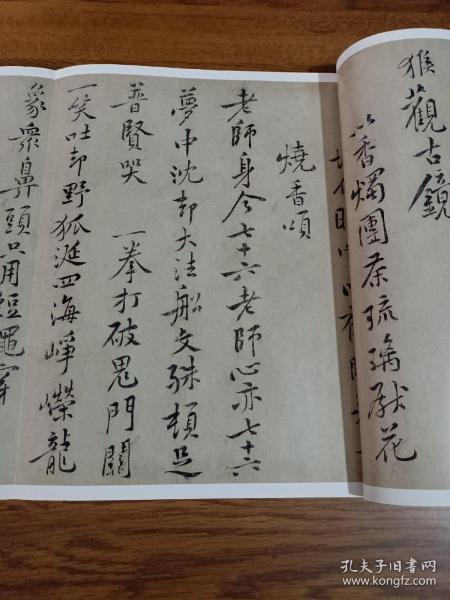 猴觀古鏡
以香燭團茶琉璃獻花
燒香頌
老師身今七十六老師心亦七十六
夢中沈却大法船文殊頓足
普賢哭 一拳打破鬼門關
一笑吐却野狐涎四海崢嶸龍
象衆鼻頭只用短
孔夫子旧书网
www.kongfz.com